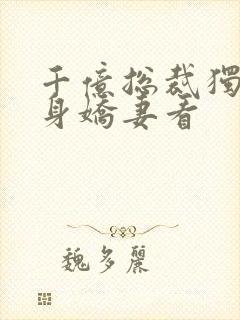 千億總裁獨
身嬌妻看
魏多麗